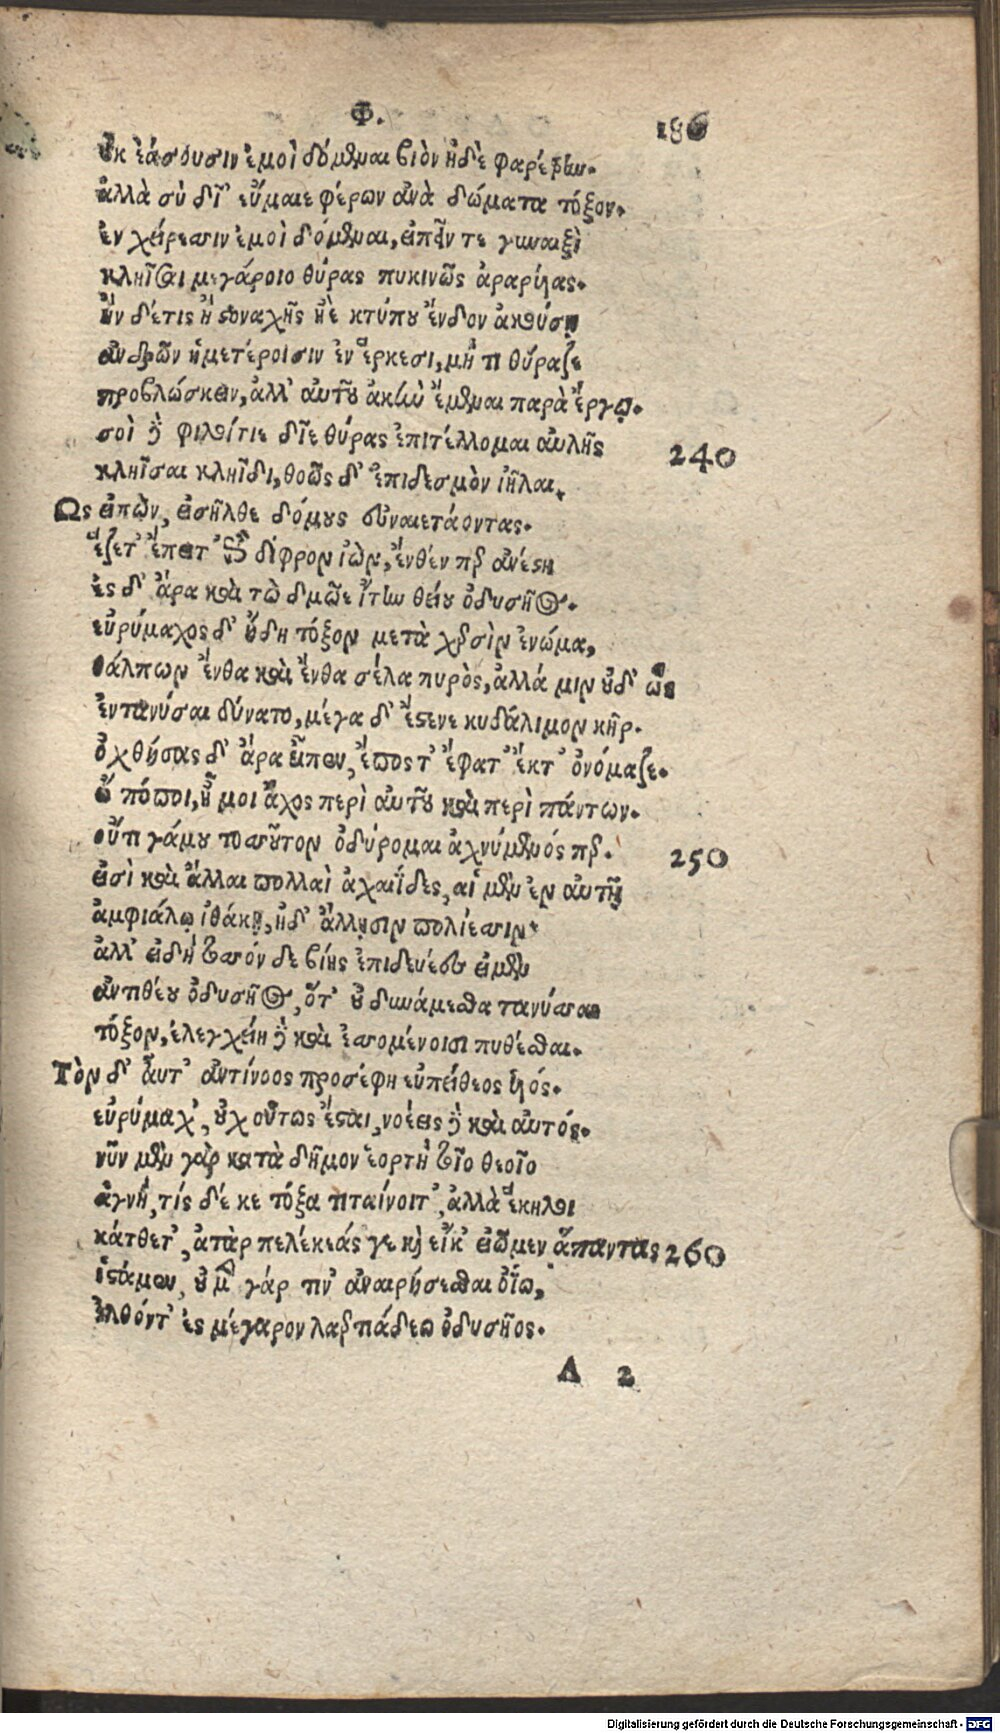 Φ. 186
οὐκ ἐάσουσιν ἐμοὶ δόμεναι βιὸν ἠδὲ φαρέτρην.
ἀλλὰ σὺ δῖ' εὔμαιε φέρων ἀνὰ δώματα τόξον.
ἐν χείρεσσιν ἐμοὶ δόμεναι, εἰπεῖν τε γυναιξὶ
κληῖσαι μεγάροιο θύρας πυκινῶς ἀραρυίας.
ἢν δέ τις ἢ στοναχῆς ἠὲ κτύπου ἔνδον ἀκούσῃ
ἀνδρῶν ἡμετέροισιν ἐν ἕρκεσι, μή τι θύραζε
προβλώσκειν, ἀλλ' αὐτοῦ ἀκὴν ἔμεναι παρὰ ἔργῳ.
σοὶ δὲ φιλοίτιε δῖε θύρας ἐπιτέλλομαι αὐλῆς 240
κληῖσαι κληῖδι, θοῶς δ' ἐπιδεσμὸν ἰῆλαι.
Ως εἰπὼν, εἰσῆλθε δόμους εὐναιετάοντας.
ἕζετ' ἔπειτ' ἐπὶ δίφρον ἰὼν, ἔνθέν περ ἀνέστη
ἐς δ' ἄρα καὶ τὼ δμῶε ἴτην θείου ὀδυσῆος.
εὐρύμαχος δ' ἤδη τόξον μετὰ χερσὶν ἐνώμα,
θάλπων ἔνθα καὶ ἔνθα σέλα πυρὸς, ἀλλά μιν οὐδ' ὣς
ἐντανύσαι δύνατο, μέγα δ' ἔστενε κυδάλιμον κῆρ.
ὀχθήσας δ' ἄρα εἶπεν, ἔπος τ' ἔφατ' ἔκ τ' ὀνόμαζε.
ὢ πόποι, ἦ μοι ἄχος περὶ αὐτοῦ καὶ περὶ πάντων.
οὔτι γάμου τοσσοῦτον ὀδύρομαι ἀχνύμενός περ. 250
εἰσὶ καὶ ἄλλαι πολλαὶ ἀχαιΐδες, αἱ μὲν ἐν αὐτῇ
ἀμφιάλῳ ἰθάκῃ, ἠδ' ἄλλῃσιν πολίεσσιν.
ἀλλ' εἰ δὴ τοσσόν δε βίης ἐπιδευέες εἰμὲν
ἀντιθέου ὀδυσῆος, ὅτ' οὐ δυνάμεσθα τανύσσαι
τόξον, ἐλεγχείη δὲ καὶ ἐσσομένοισι πυθέσθαι.
Τὸν δ' αὖτ' ἀντίνοος προσέφη εὐπείθεος υἱός.
εὐρύμαχ', οὐχ οὕτως ἔσται, νοέεις δὲ καὶ αὐτός.
νῦν μὲν γὰρ κατὰ δῆμον ἑορτὴ τοῖο θεοῖο
ἁγνή, τίς δέ κε τόξα τιταίνοιτ', ἀλλὰ ἕκηλοι
κάτθετ', ἀτὰρ πελέκεάς γε καὶ εἴκ' εἰῶμεν ἅπαντας 260
ἱστάμεν, οὐ μὲν γάρ τιν' ἀναιρήσεσθαι ὀΐω,
ἐλθόντ' ἐς μέγαρον λαερτιάδεω ὀδυσῆος.
A 2
Digitalisierung gefördert durch die Deutsche Forschungsgemeinschaft - DFG